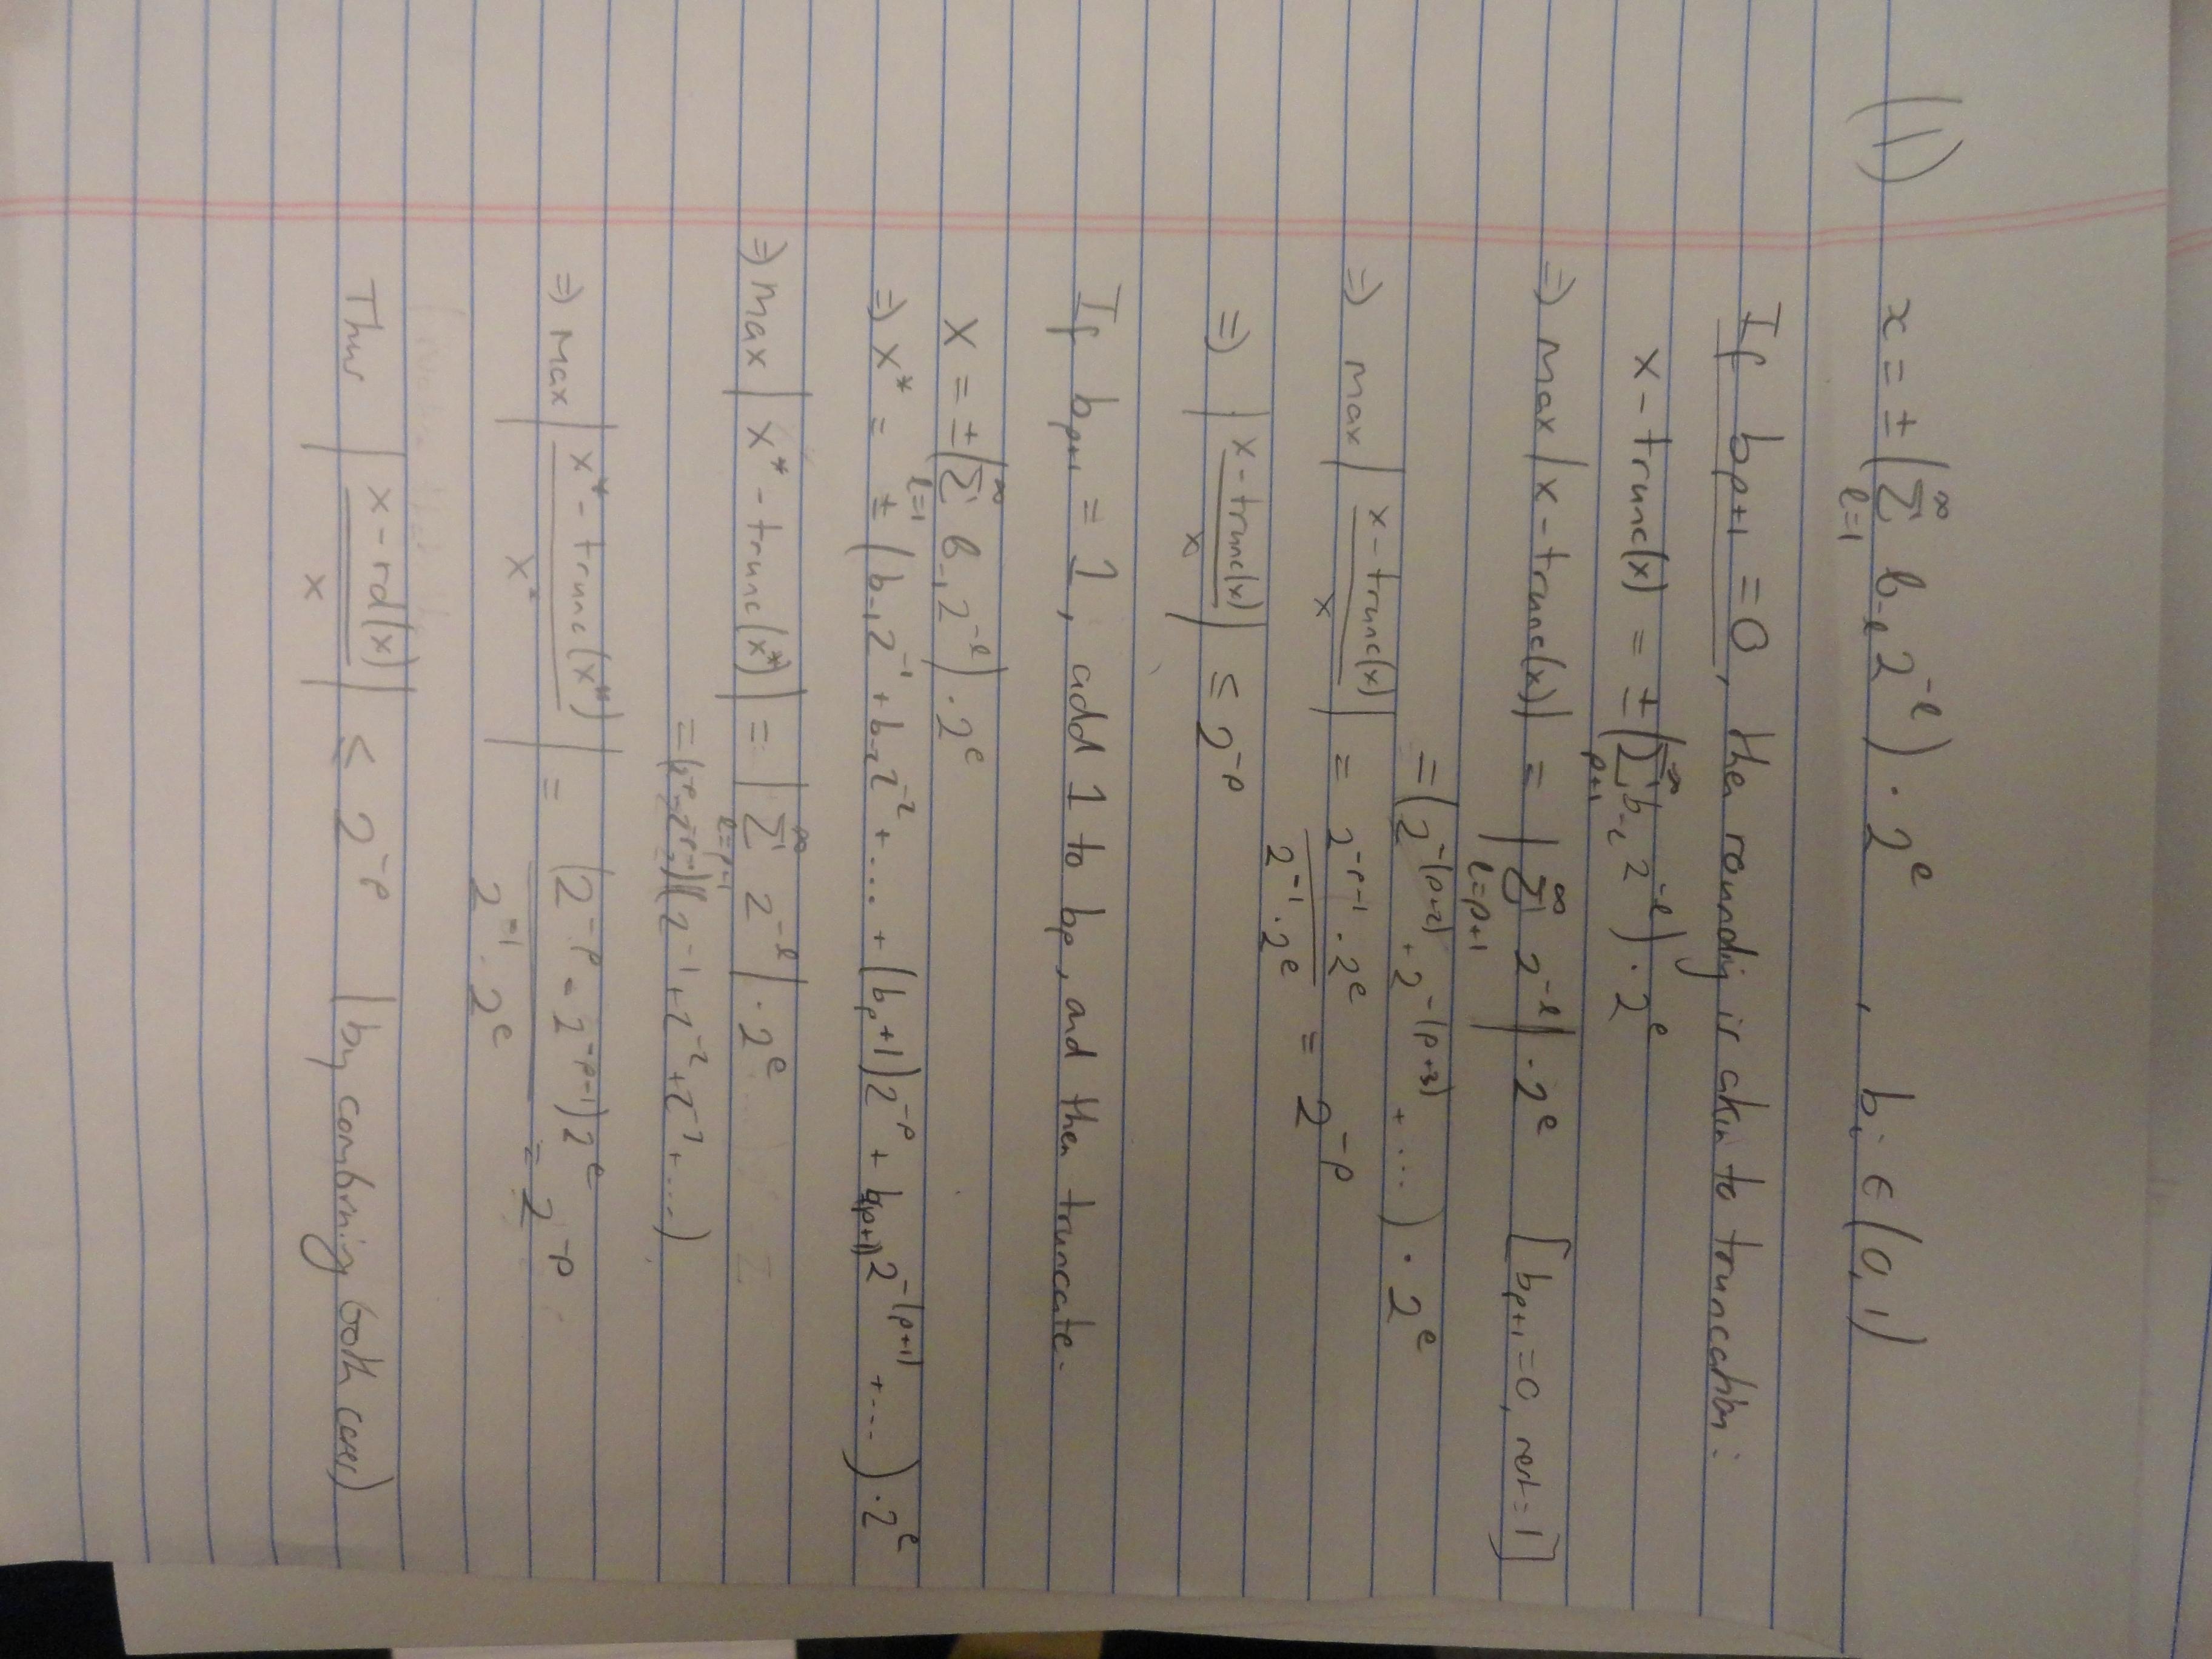 (1) x = ± (∑_{ℓ=1}^{∞} b_{-ℓ} 2^{-ℓ}) · 2^e , b_i ∈ (0,1)
If b_{p+1} = 0, then rounding is akin to truncation:
x - trunc(x) = ± (∑_{p+1}^{∞} b_{-ℓ} 2^{-ℓ}) · 2^e
⇒ max |x - trunc(x)| = |∑_{ℓ=p+1}^{∞} 2^{-ℓ}| · 2^e [b_{p+1} = 0, rest = 1]
= (2^{-(p+2)} + 2^{-(p+3)} + ....) · 2^e
⇒ max |(x - trunc(x))/x| = (2^{-p-1} · 2^e)/(2^{-1} · 2^e) = 2^{-p}
⇒ |(x - trunc(x))/x| ≤ 2^{-p}
If b_{p+1} = 1, add 1 to b_p, and then truncate.
x = ± (∑_{ℓ=1}^{∞} b_{-1} 2^{-ℓ}) · 2^e
⇒ x* = ± (b_{-1} 2^{-1} + b_{-2} 2^{-2} + .... + (b_p + 1) 2^{-p} + b_{(p+1)} 2^{-(p+1)} + ....) · 2^e
⇒ max |x* - trunc(x*)| = |∑_{ℓ=p+1}^{∞} 2^{-ℓ}| · 2^e
(2^{-1} + 2^{-2} + + ...)
⇒ max |(x* - trunc(x*))/x*| = ((2^{-p} - 2^{-p-1}) 2^e)/(2^{-1} · 2^e) = 2^{-p}
Thus |(x - rd(x))/x| ≤ 2^{-p} (by combining both cases)